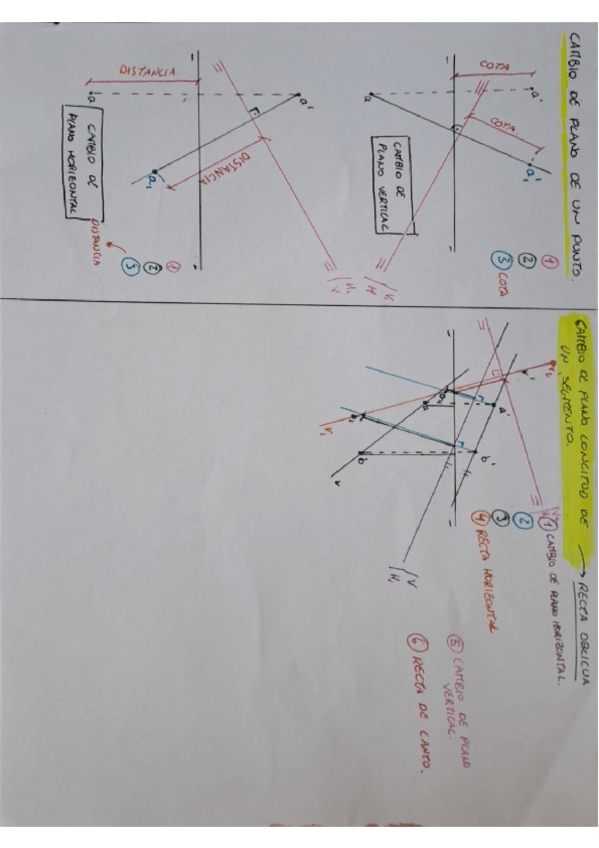 CAMBIO DE PLANO DE UN PUNTO:
COTA
a'
a
COTA.
a'1
CAMBIO DE
PLANO VERTICAL
V/H
1
2
3 COTA
DISTANCIA
a'
a
DISTANCIA
a1
CAMBIO DE
PLANO HORIZONTAL
H1
V
1
2
3
DISTANCIA
CAMBIO DE PLANO LONGITUD DE
UN SEGMENTO.
→ RECTA OBLICUA
1 CAMBIO DE PLANO HORIZONTAL.
2
3
4 RECTA HORIZONTAL
5 CAMBIO DE PLANO
VERTICAL.
6 RECTA DE CANTO.
r2
r'
a'
a
b'
b
r1
r
V
H1